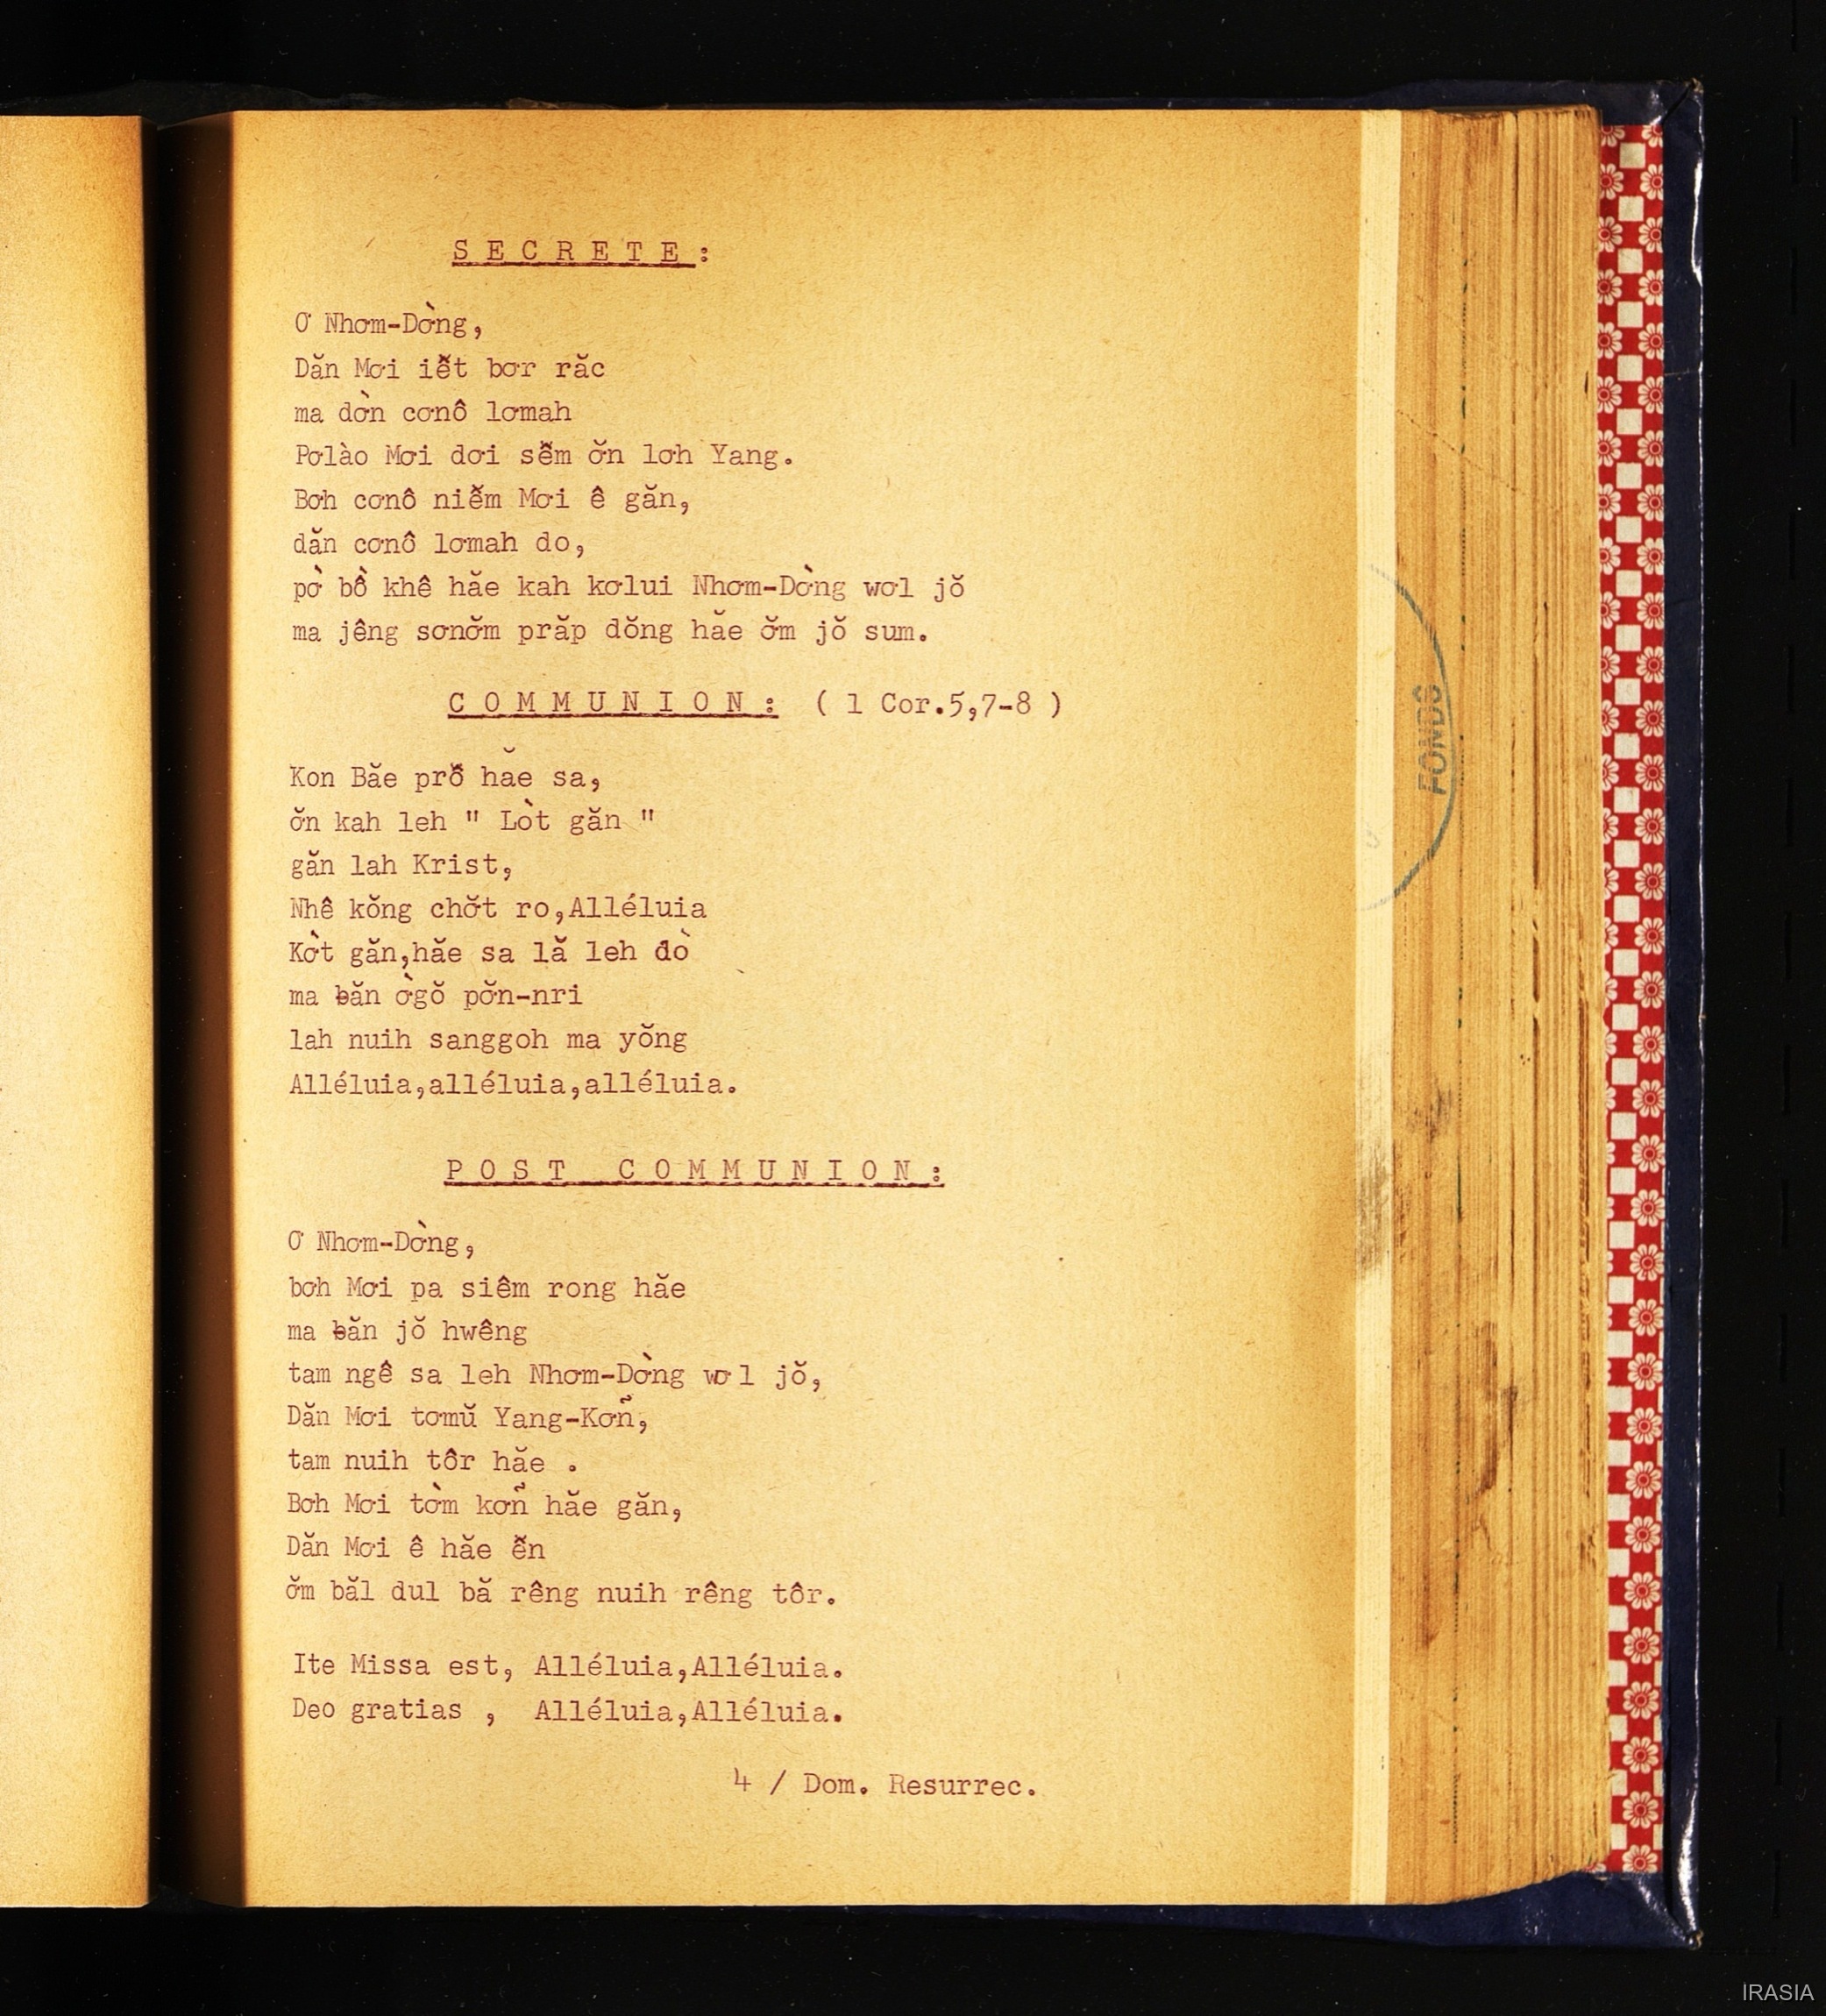 S E C R E T E :
Ơ Nhơm-Dờng,
Dăn Mơi iê̆t bơr răc
ma dờn cơnô lơmah
Pơlào Mơi dơi sê̆m ơ̆n lơh Yang.
Bơh cơnô niê̆m Mơi ê găn,
dăn cơnô lơmah do,
pờ bồ khê hăe kah kơlui Nhơm-Dờng wơl jŏ
ma jêng sơnơ̆m prăp dŏng hăe ơ̆m jŏ sum.
C O M M U N I O N : ( 1 Cor.5,7-8 )
Kon Băe prô̆ hăe sa,
ơ̆n kah leh " Lòt găn "
găn lah Krist,
Nhê kŏng chơ̆t ro,Alléluia
Kờt găn,hăe sa lă leh đò
ma ƀăn ờgŏ pơ̆n-nri
lah nuih sanggoh ma yŏng
Alléluia,alléluia,alléluia.
P O S T  C O M M U N I O N :
Ơ Nhơm-Dờng,
bơh Mơi pa siêm rong hăe
ma ƀăn jŏ hwêng
tam ngê sa leh Nhơm-Dờng wơl jŏ,
Dăn Mơi tơmŭ Yang-Kơñ,
tam nuih tôr hăe .
Bơh Mơi tờm kơñ hăe găn,
Dăn Mơi ê hăe ê̆n
ơ̆m băl dul bă rêng nuih rêng tôr.
Ite Missa est, Alléluia,Alléluia.
Deo gratias , Alléluia,Alléluia.
4 / Dom. Resurrec.
FONDS
IRASIA